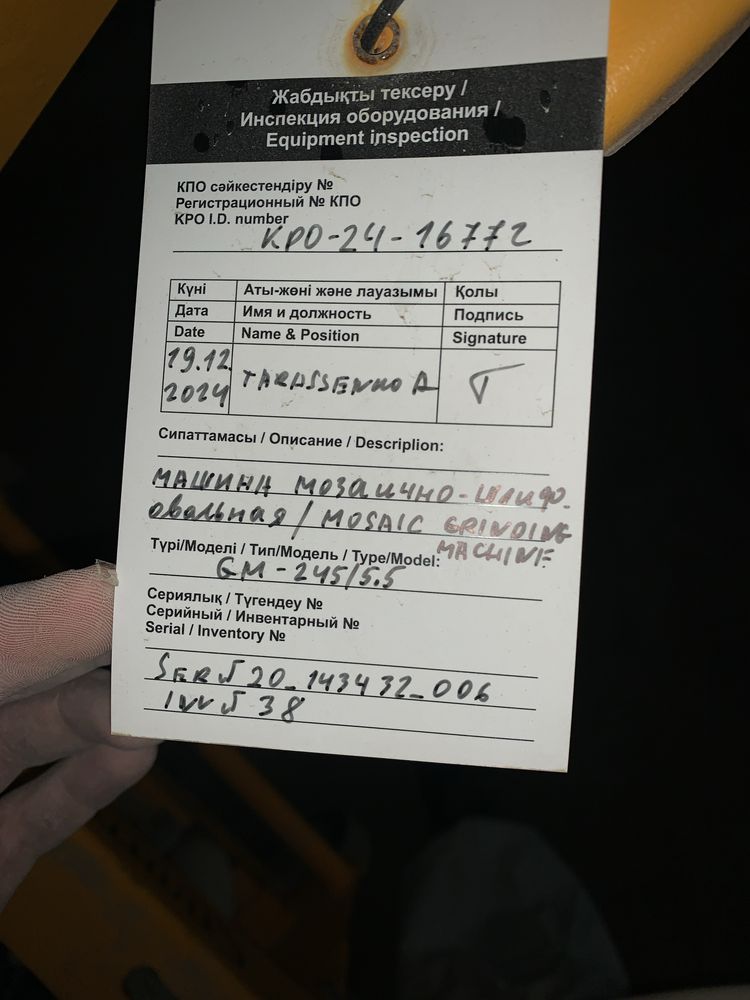 Жабдықты тексеру /
Инспекция оборудования /
Equipment inspection
КПО сәйкестендіру №
Регистрационный № КПО
KPO I.D. number
KPO-24-16772
Күні Аты-жөні және лауазымы Қолы
Дата Имя и должность Подпись
Date Name & Position Signature
19.12.
2024
TARASSENKO A
Сипаттамасы / Описание / Descriplion:
МАШИНА МОЗАИЧНО-ШЛИФО
ОВАЛЬНАЯ / MOSAIC GRINDING
MACHINE
Түрі/Моделі / Тип/Модель / Type/Model:
GM-245/5.5
Сериялық / Түгендеу №
Серийный / Инвентарный №
Serial / Inventory №
SER № 20_143432_006
INV № 38